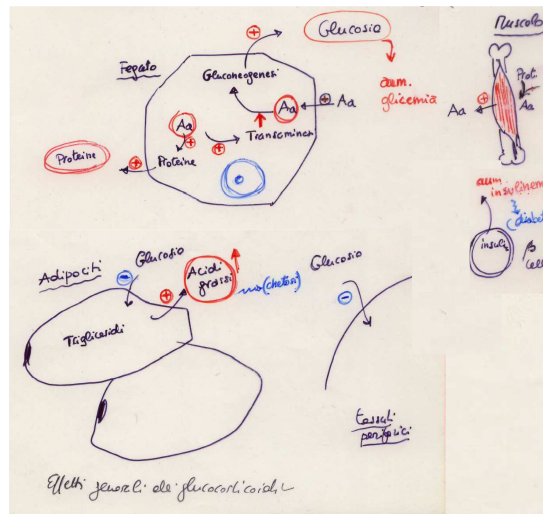 Fegato
Glucosio
Gluconeogenesi
aum.
glicemia
Aa
Aa
Aa
Transaminasi
Proteine
Proteine
Muscolo
Prot.
Aa
Aa
aum.
insulinem
diabet
insulin
β
cell
Adipociti
Glucosio
Acidi
grassi
(chetosi)
Trigliceridi
Glucosio
tessuti
periferici
Effetti generali dei glucocorticoidi